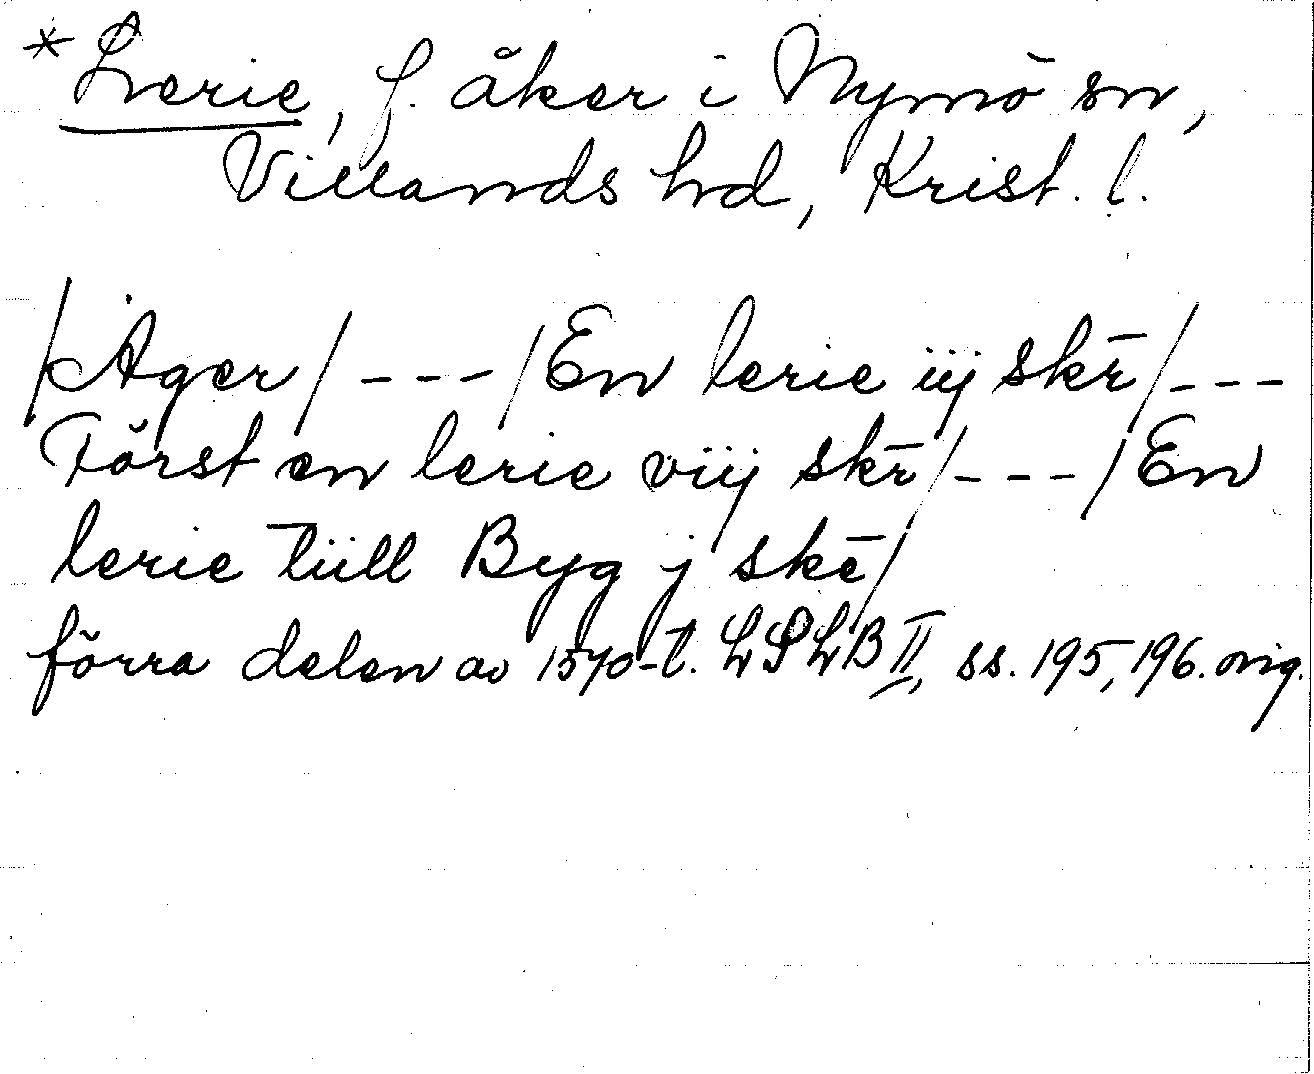 *Lerie, f. åker i Nymö sn,
Villands hd, Krist. l.
/Ager/ --- /En lerie iij skr̄/ ---
Först en lerie viij skr̄/ --- /En
lerie tiill Byg j skē/
förra delen av 1570-t. LSLB II, ss. 195, 196. orig.